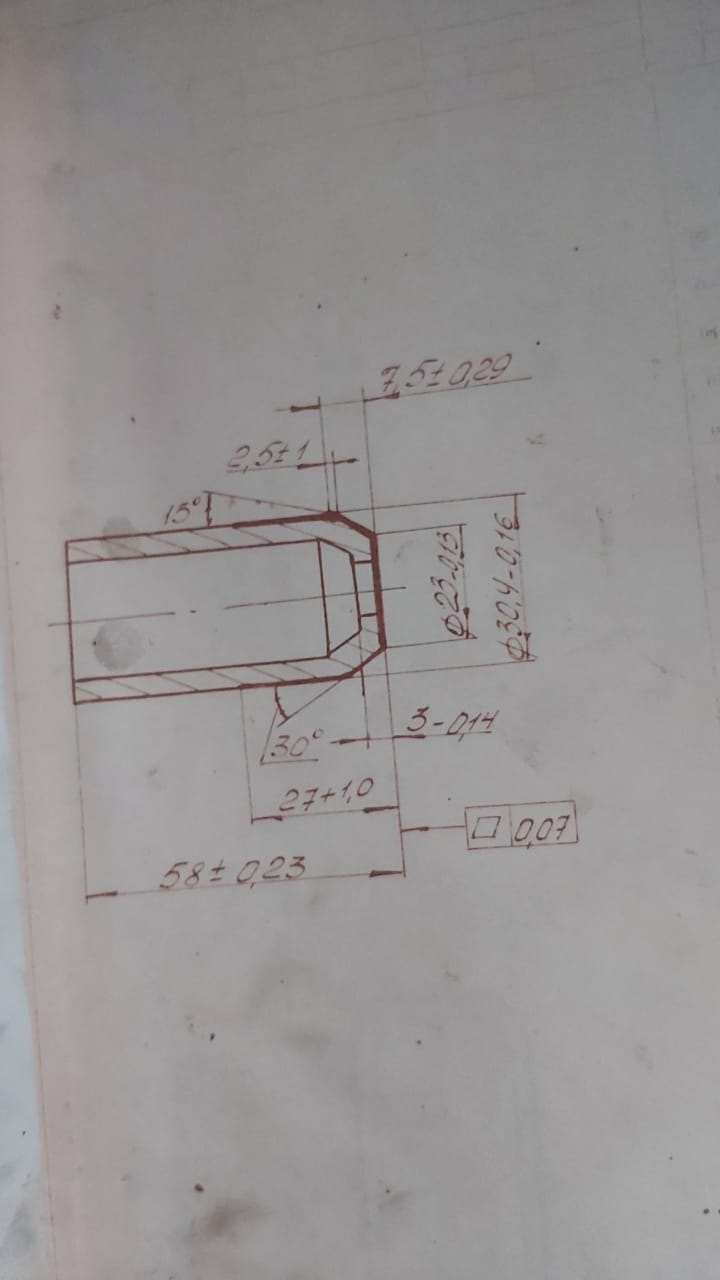 7,5±0,29
2,5±1
15°
Ф23-0,13
Ф30,4-0,16
30°
3-0,14
27+1,0
0,07
58±0,23